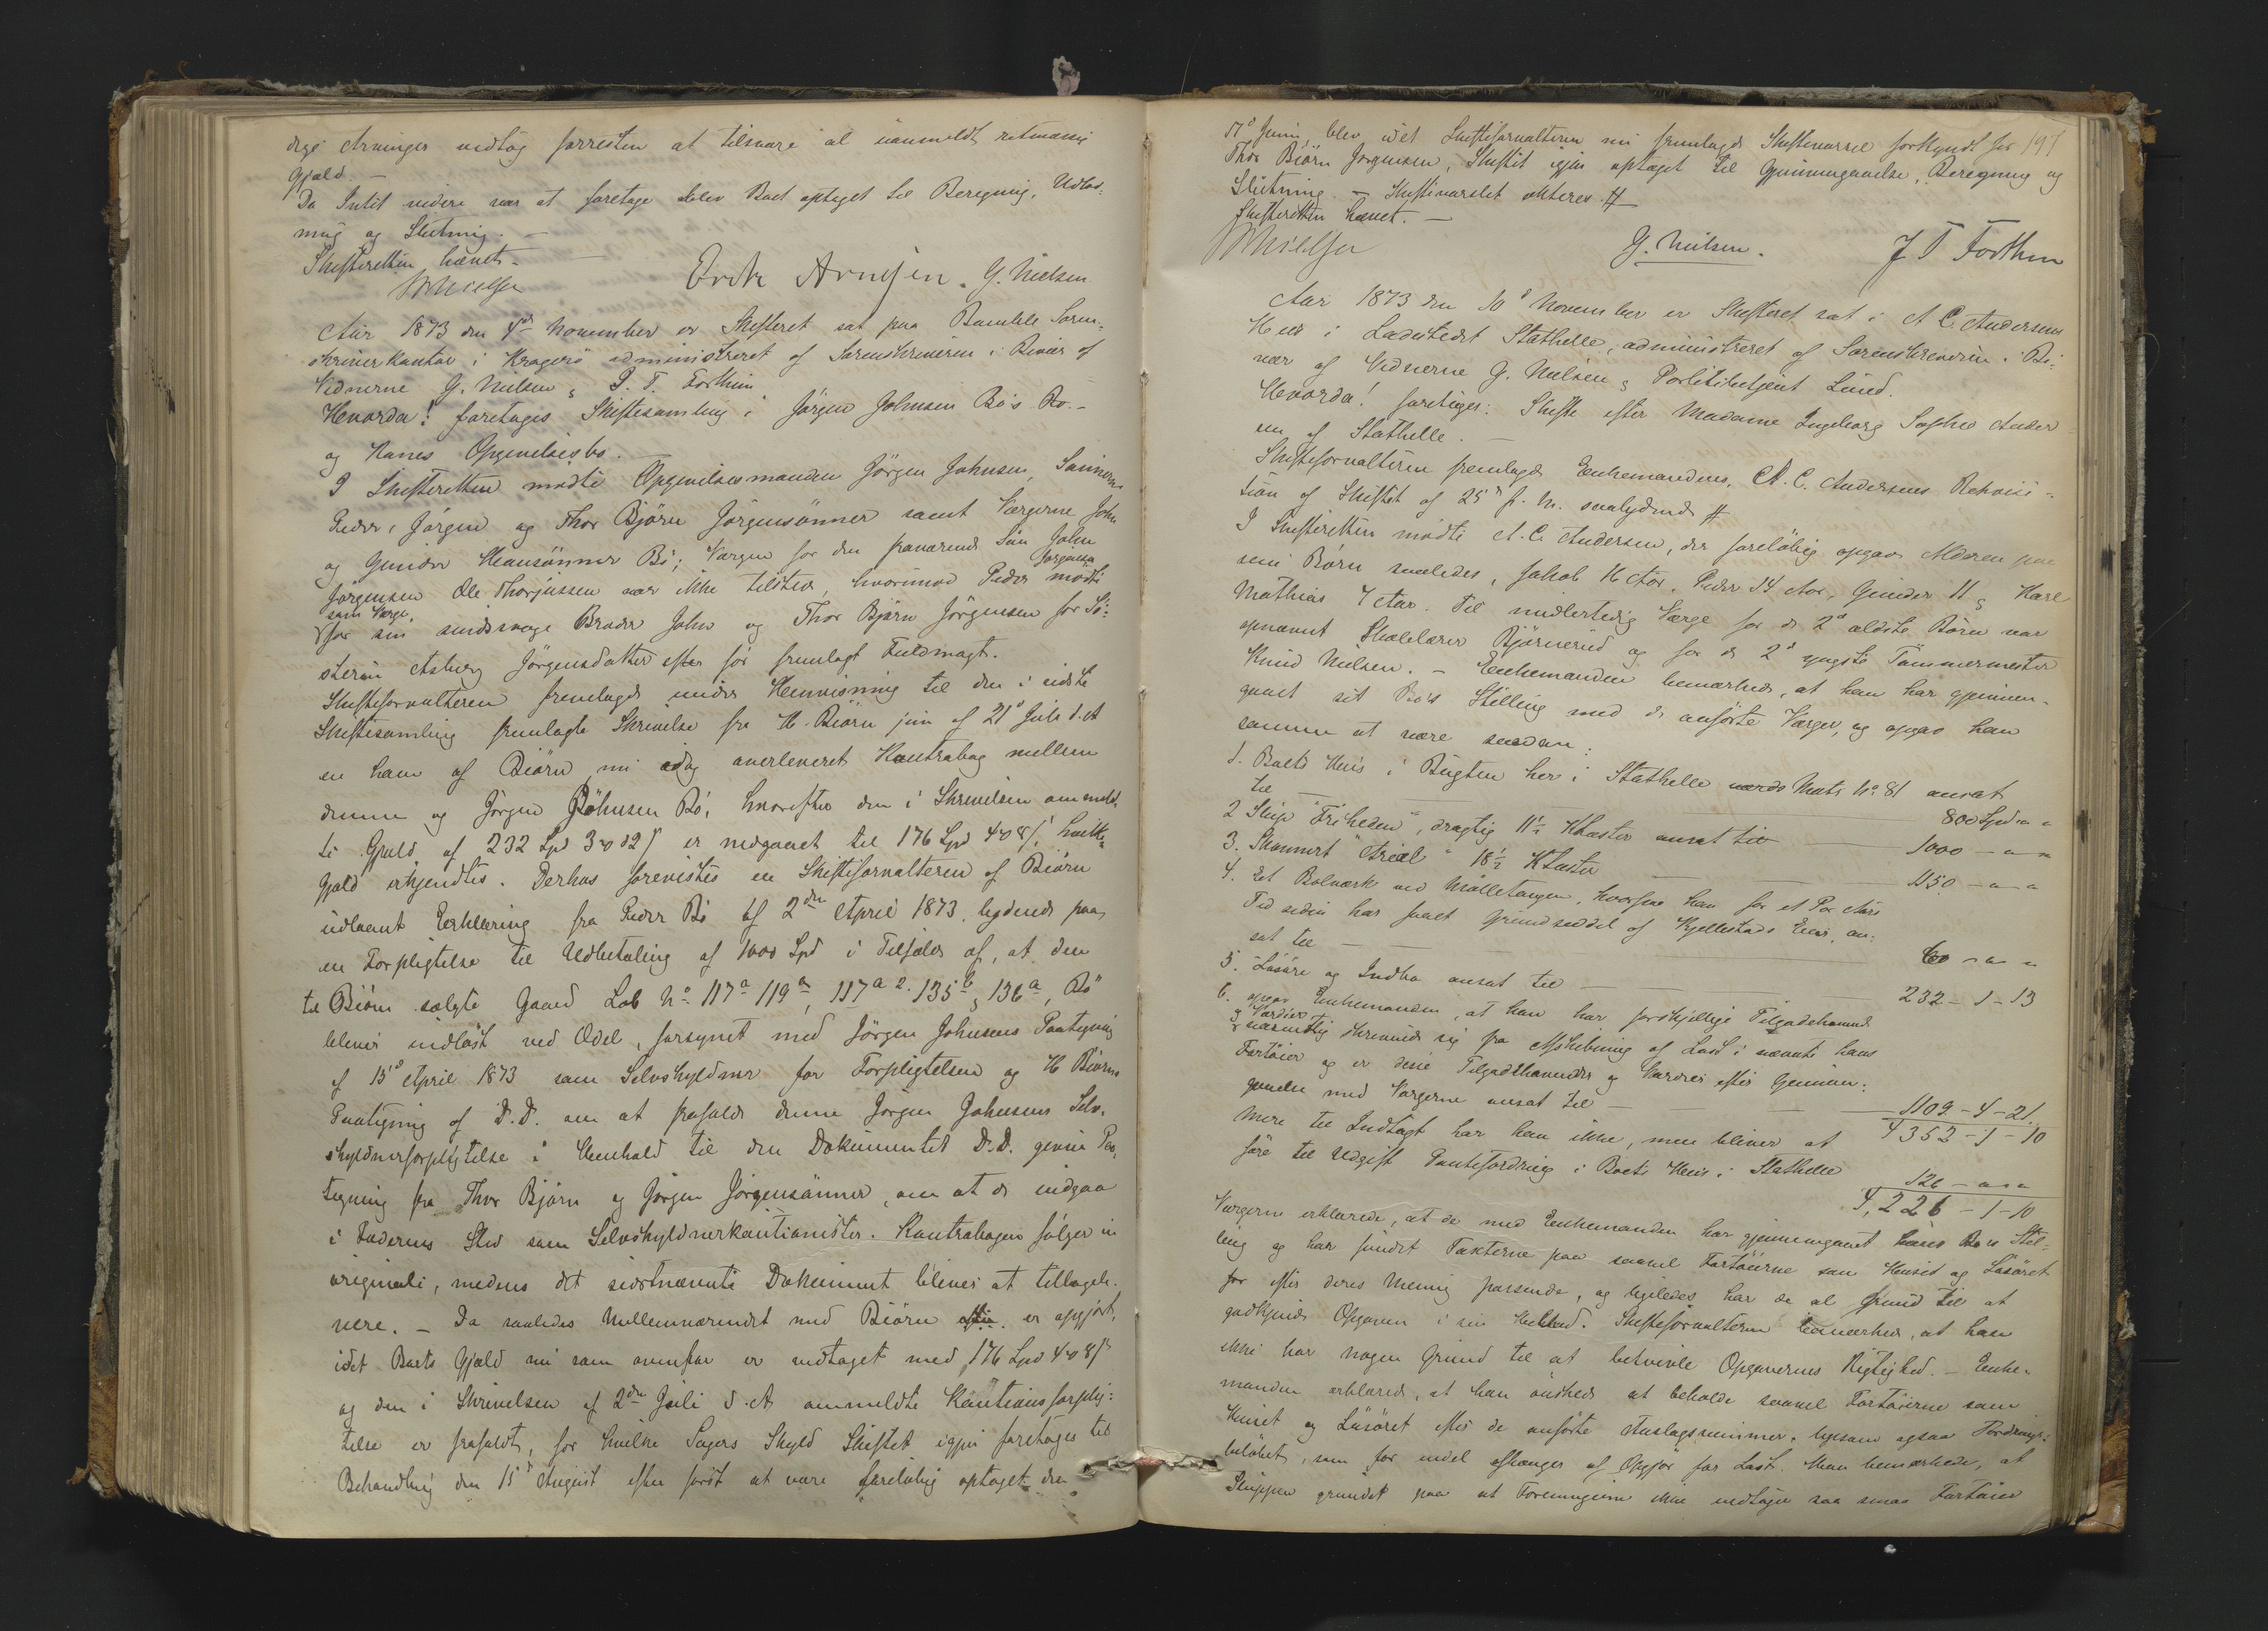 dige Arvinger vedtog forresten at tilsvare al uanmeldt retmæssig
Gjæld. —
Da Intet videre var at foretage blev Boet optaget til Beregning, Udlæg:
ning og Slutning. —
Skifteretten hævet. —
Erik Arnesen. G. Nielsen
Aar 1873 den 4de November er Skifteret sat paa Bamble Soren:
skriverkontor i Kragerö administreret af Sorenskriveren i Bivær af
Vidnerne G. Nielsen & J. T. Forthun
Hvorda! foretages Skiftesamling i Jörgen Johnsen Bö's Bo. —
og Hanes Opgivelsesbo. —
I Skifteretten mödte Opgivelsesmanden Jörgen Johnsen, Sönnerne
Peder, Jörgen og Thor Björn Jörgensönner samt Værgerne John
og Gunder Hansönner Bö; Værgen for den fraværende Sön John
Jörgensen Ole Thorjussen var ikke tilstede, hvorimod Peder Jörgensen mödte
som Værge
for sin sindssvage Broder John og Thor Björn Jörgensen for Sö:
steren Asberg Jörgensdatter efter för fremlagt Fuldmagt.
Skifteforvalteren fremlagde under Henvisning til den i sidste
Skiftesamling fremlagte Skrivelse fra H. Biörn jun af 21de Juli d. A
en ham af Biörn nu idag overleveret Kontrabog mellem
denne og Jörgen Johnsen Bö, hvorefter den i Skrivelsen ommeld.
te Gjæld af 232 Spd 3 ♂ 12 β er nedgaaet til 176 Spd 4 ♂ 8 β, hvilken
Gjæld erkjendtes. Derhos forevistes en Skifteforvalteren af Biörn
udlaant Erklæring fra Peder Bö af 2den April 1873, lydende paa
en Forpligtelse til Udbetaling af 1000 Spd i Tilfælde af, at den
til Biörn solgte Gaard Löb No 117a 119a, 117a2. 135b & 136a, Bö
bliver indlöst ved Odel, forsynet med Jörgen Johnsens Paategning
af 15de April 1873 som Selvskyldner for Forpligtelsen og H Biörns
Paategning af D. D. om at frafalde denne Jörgen Johnsens Selv.
skyldnerforpligtelse i Henhold til den Dokumentet D. D. givne Paa.
tegning fra Thor Björn og Jörgen Jörgensönner, om at de indgaa
i Faderens Sted som Selvskyldnerkautionister. Kontrabogen fölger in
originali, medens det sidstnævnte Dokument bliver at tilbagele.
vere. — Da saaledes Mellemværendet med Biörn er opgjort,
idet Boets Gjæld nu som ovenfor er vedtaget med 176 Spd 4 ♂ 8 β
og den i Skrivelsen af 2den Juli d. A ommeldte Kautionsforplig:
telse er frafaldt, for hvilke Sagers Skyld Skiftet igjen foretages til
Behandling den 15de August efter först at være foreløbig optaget den
17de Juni, blev idet Skifteforvalteren nu fremlagde Skiftevarsel forkyndt for 197
Thor Biörn Jörgensen, Skiftet igjen optaget til Gjennemgaaelse, Beregning og
Slutning. — Skiftevarslet akteres. #
Skifteretten hævet. —
G. Nielsen. J T Forthun
Aar 1873 den 10de November er Skifteret sat i A C. Andersens
Huus i Ladestedet Stathelle, administreret af Sorenskriveren i Bi:
vær af Vidnerne G. Nielsen & Politibetjent Lund.
Hvorda! foretages: Skifte efter Madame Ingeborg Sophie Ander
sen af Stathelle. —
Skifteforvalteren fremlagde Enkemandens, A. C. Andersens Rekvisi:
tion af Skiftet af 25de f. M. saalydende #
I Skifteretten mödte A. C. Andersen, der foreløbig opgav Alderen paa
sine Börn saaledes, Jakob 16 Aar, Peder 14 Aar, Gunder 11 & Karl
Mathias 7 Aar. Til midlertidig Værge for de 2de ældste Börn var
opnævnt Skolelærer Björnerud og for de 2de yngste Tömmermester
Knud Nielsen. — Enkemanden bemærkede, at han har gjennem.
gaaet sit Bo's Stilling med de anförte Værger, og opgav han
samme at være saadan:
1. Boets Huus i Bugten her i Stathelle Matr No 81 ansat
til — 800 Spd " "
2 Skip "Friheden", drægtig 11½ KLæster ansat til — 1000 — " "
3. Skonnert "Ariel" 18½ KLæster — 1150 — " "
4. Et Bolværk ved Mölletangen, hvorpaa han for et Par Aars
Tid siden har faaet Grundseddel af Kjellestads Eier, an:
sat til — 60 — " "
5. Lösöre og Indbo ansat til — 232 — 1 — 13
6. opgav Enkemanden, at han har forskjellige Tilgodehavender
& Værdier
væsentlig skrivende sig fra Afskibning af Last i nævnte hans
Fartöier og er disse Tilgodehavender og Værdier efter Gjennem:
gaaelse med Værgerne ansat til — 1109 — 4 — 21.
4352 — 1 — 10
Mere til Indtægt har han ikke, men bliver at
före til Udgift Pantefordring i Boets Huus i Stathelle 126 — " "
4,226 — 1 — 10
Værgerne erklærede, at de med Enkemanden har gjennemgaaet hans Bo's Stil:
ling og har fundet Taxterne paa saavel Fartöierne som Huset og Lösöret
for efter deres Mening passende, og ligeledes har de al Grund til at
godkjende Opgaven i sin Helhed. Skifteforvalteren bemærkede, at han
ikke har nogen Grund til at betvivle Opgavernes Rigtighed. — Enke.
manden erklærede, at han önskede at beholde saavel Fartöierne som
Huset og Lösöret efter de anförte Anslagssummer, ligesom ogsaa Fordrings:
belöbet, som for endel afhænger af Opgjör for Last. Han bemærkede, at
Skuppen grundet paa at Foreningerne ikke vedtager saa smaa Fartöier